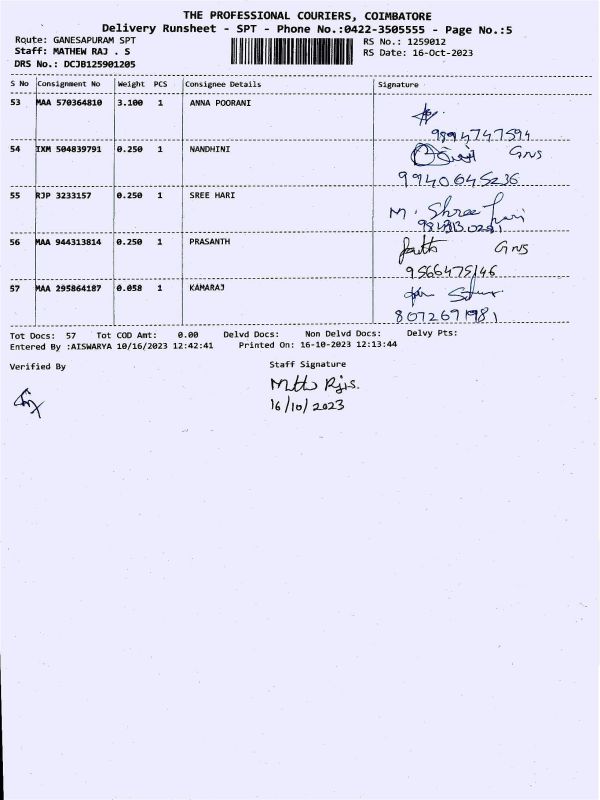 THE PROFESSIONAL COURIERS, COIMBATORE
Delivery Runsheet - SPT - Phone No.:0422-3505555 - Page No.:5
Route: GANESAPURAM SPT
RS No.: 1259012
Staff: MATHEW RAJ . S
RS Date: 16-Oct-2023
DRS No.: DCJB125901205
S No Consignment No Weight PCS Consignee Details Signature
53 MAA 570364810 3.100 1 ANNA POORANI
9894747594
54 IXM 504839791 0.250 1 NANDHINI
GNS
9940645236
55 RJP 3233157 0.250 1 SREE HARI
M. Shree hari
56 MAA 944313814 0.250 1 PRASANTH
GNS
9566475146
57 MAA 295864187 0.058 1 KAMARAJ
8072671981
Tot Docs: 57 Tot COD Amt: 0.00 Delvd Docs: Non Delvd Docs: Delvy Pts:
Entered By :AISWARYA 10/16/2023 12:42:41 Printed On: 16-10-2023 12:13:44
Verified By
Staff Signature
16/10/2023